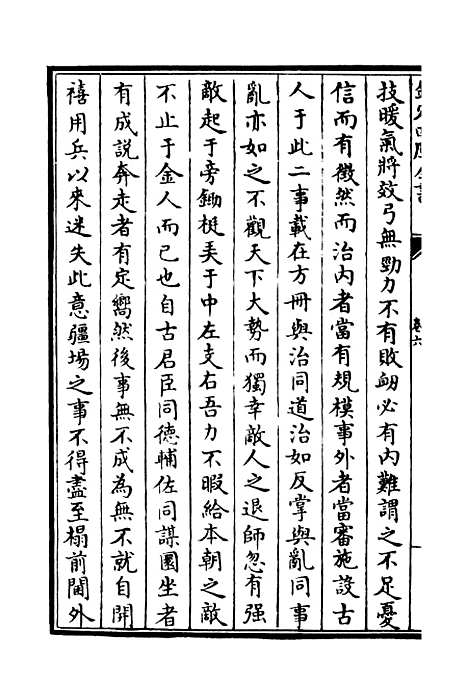 技暖氣將效弓無勁力不有敗衂必有內難謂之不足憂
信而有徴然而治內者當有規模事外者當審施設古
人于此二事載在方冊與治同道治如反掌與亂同事
亂亦如之不觀天下大勢而獨幸敵人之退師忽有强
敵起于旁鋤梃美于中左支右吾力不暇給本朝之敵
不止于金人而已也自古君臣同徳輔佐同謀圜坐者
有成說奔走者有定嚮然後事無不成為無不就自開
禧用兵以來迷失此意疆場之事不得盡至榻前閫外